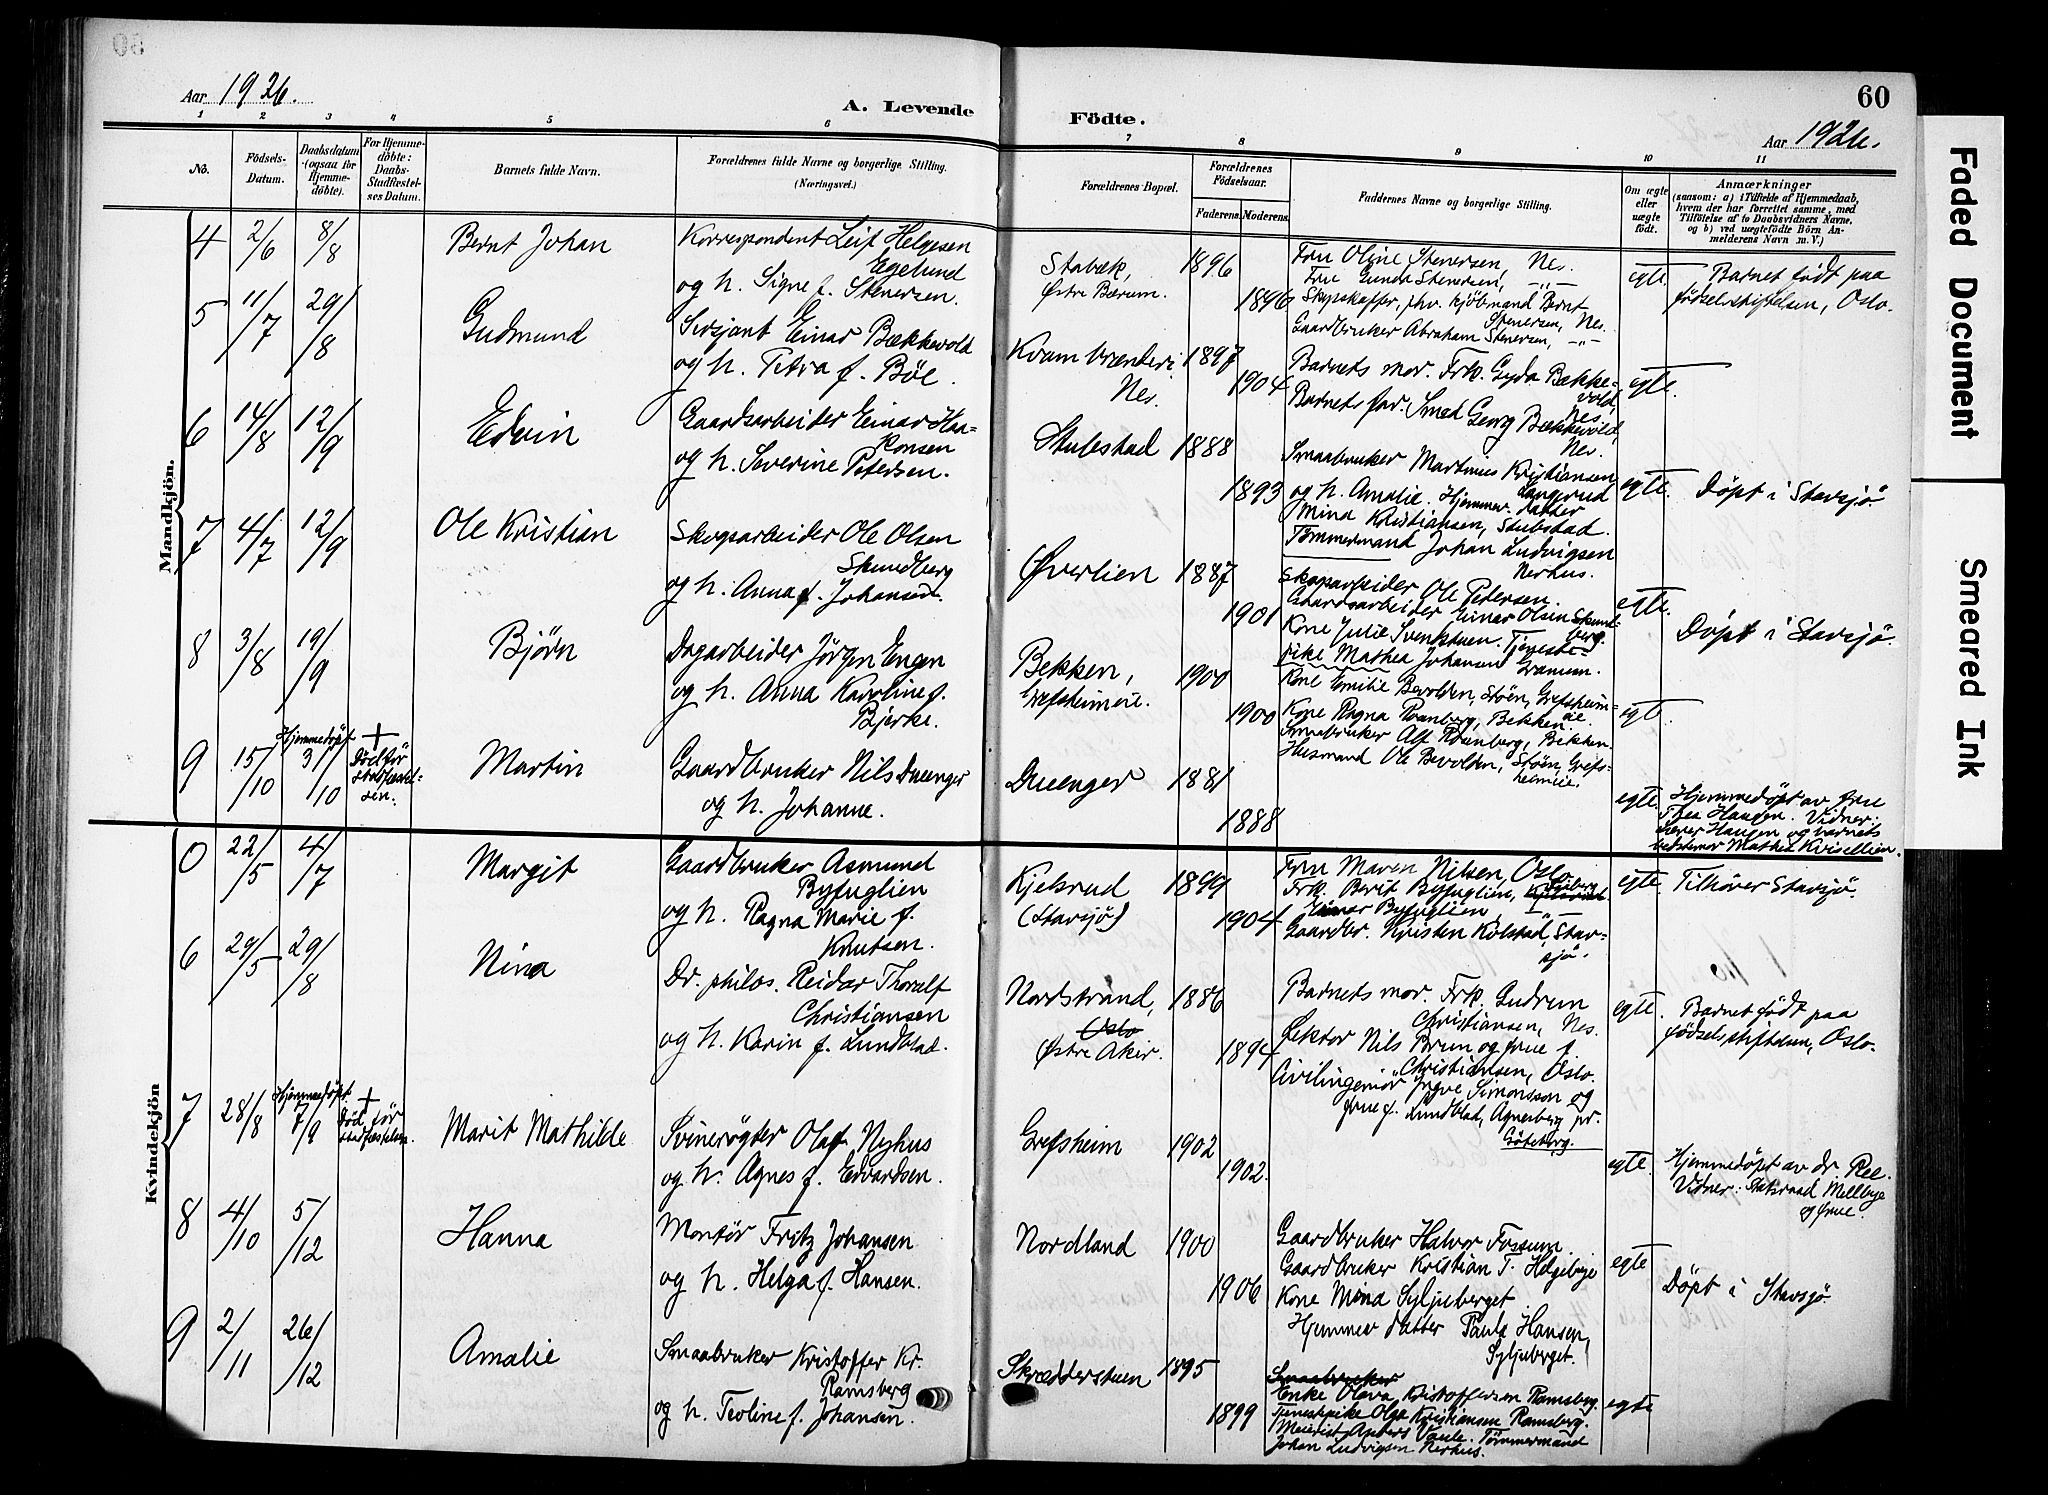 Aar 1926.
A. Levende
Födte.
60
Aar 1926.
1 2 3 4 5 6 7 8 9 10 11
No.
Födsels-
Datum.
Daabsdatum
(ogsaa för
Hjemme-
döbte).
For Hjemme-
döbte:
Daabs-
Stadfæstel-
ses Datum.
Barnets fulde Navn.
Forældrenes fulde Navne og borgerlige Stilling.
(Næringsvei.)
Forældrenes Bopæl.
Forældrenes
Födselsaar.
Faderens. Moderens.
Faddernes Navne og borgerlige Stilling.
Om ægte
eller
uægte
födt.
Anmærkninger
(saasom: a) i Tilfælde af Hjemmedaab,
hvem der har forrettet samme, med
Tilföielse af to Daabsvidners Navne,
og b) ved uægtefödte Börn An-
melderens Navn m. V.)
Mandkjön.
4 2/6 8/8 Bernt Johan
Korrespondent Leif Helgesen
Egelund
og h. Signe f. Stenersen.
Stabæk,
Østre Bærum.
1896
1896
Fru Oline Stenersen, Nes.
Frue Gunda Stenersen, -"-
Skipskaffer, fhv. kjöbmand Bernt
Stenersen, Nes.
Gaardbruker Abraham Stenersen, -"-
egte.
Barnet födt paa
födselsstiftelsen, Oslo.
5 11/7 29/8 Gudmund
Sersjant Einar Bækkevold
og h. Petra f. Böe.
Kvam brænderi
Nes.
1897
1904
Barnets mor. Frk. Gyda Bække-
vold, Nes.
Barnets far. Smed Georg Bækkevold,
Nes.
egte.
6 14/8 12/9 Edvin
Gaardsarbeider Einar Haa-
konsen
og h. Severine Petersen.
Stubstad
1888
1893
Smaabruker Martinus Kristiansen
Langerud
og h. Amalie. Hjemmev. datter
Mina Kristiansen, Stubstad.
Tömmermand Johan Ludvigsen
Nerhus.
egte.
Döpt i Stavsjö.
7 4/7 12/9 Ole Kristian
Skogsarbeider Ole Olsen
Skundberg
og h. Anna f. Johansen.
Øverlien
1887
1901
Skogarbeider Ole Pedersen.
Gaardsarbeider Einar Olsen Skund-
berg.
Kone Julie Svenstuen. Tjeneste-
pike Mathea Johansen Granum.
egte.
Döpt i Stavsjö.
8 3/8 19/9 Björn
Dagarbeider Jörgen Engen
og h. Anna Karoline f.
Bjerke.
Bekken,
Grefsheimeie.
1900
1900
Kone Emilie Bevolden, Stöen, Grefsheim-
eie.
Kone Ragna Rosenberg, Bekken
Smaabruker Alf Rosenberg, Bekken.
Husmand Ole Bevolden, Stöen, Grefs-
heimeie.
egte.
9 15/10 Hjemmedöpt 31/10
+
Död för
stadfæstel-
sen.
Martin
Gaardbruker Nils Dueenger
og h. Johanne.
Dueenger
1881
1888
egte.
Hjemmedöpt av frue
Thea Haugen. Vidner:
Lærer Haugen og barnets
bedstemor Mathea Kvisellien.
Kvindekjön
0 22/5 4/7 Margit
Gaardbruker Asmund
Byfuglien
og h. Ragna Marie f.
Knutsen.
Kjelsrud
(Stavsjö)
1899
1904
Fru Maren Nilsen, Oslo
Frk. Berit Byfuglien,
Einar Byfuglien, -"-
Gaardbr. Kristen Kolstad, Stav-
sjö.
egte.
Tilhörer Stavsjö.
6 29/5 29/8 Nina
Dr. philos. Reidar Thoralf
Christiansen
og h. Karin f. Lundblad.
Nordstrand,
Oslo
Østre Aker.
1886
1894
Barnets mor. Frk. Gudrun
Christiansen, Nes.
Lektor Nils Brun og frue f.
Christiansen, Oslo.
Civilingeniör Yngve Simonsson og
frue f. Lundblad, Agnesberg pr.
Göteborg.
egte.
Barnet födt paa
födselsstiftelsen, Oslo.
7 28/8 Hjemmedöpt 7/9
+
Död för
stadfæstelsen.
Marit Mathilde
Svinerögter Olaf Nyhus
og h. Agnes f. Edvardsen.
Grefsheim
1902
1902.
egte.
Hjemmedöpt av dr. Ree.
Vidner: Statsraad Mellbye
og frue.
8 4/10 5/12 Hanna
Montör Fritz Johansen
og h. Helga f. Hansen.
Nordland
1900
1906
Gaardbruker Halvor Fossum.
Gaardbruker Kristian T. Helgebye
Kone Mina Syljuberget.
Hjemmev. datter Paula Hansen,
Syljuberget.
egte
Döpt i Stavsjö.
9 2/11 26/12 Amalie
Smaabruker Kristoffer Kr.
Ramsberg
og h. Teoline f. Johansen.
Skrædderstuen
1895
1899
Smaabruker
Enke Olava Kristoffersen Ramsberg.
Tjenestepike Olga Kristiansen Ramsberg.
Meierist Anders Vaule. Tömmermand
Johan Ludvigsen Nerhus.
egte
Faded Document
Smeared Ink